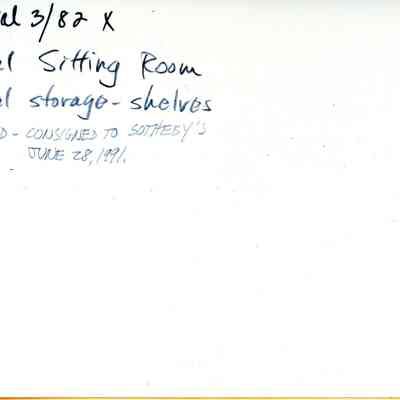 al 3/82 X
el Sitting Room
el storage-shelves
D - CONSIGNED TO SOTHEBY'S
JUNE 28, 1991.